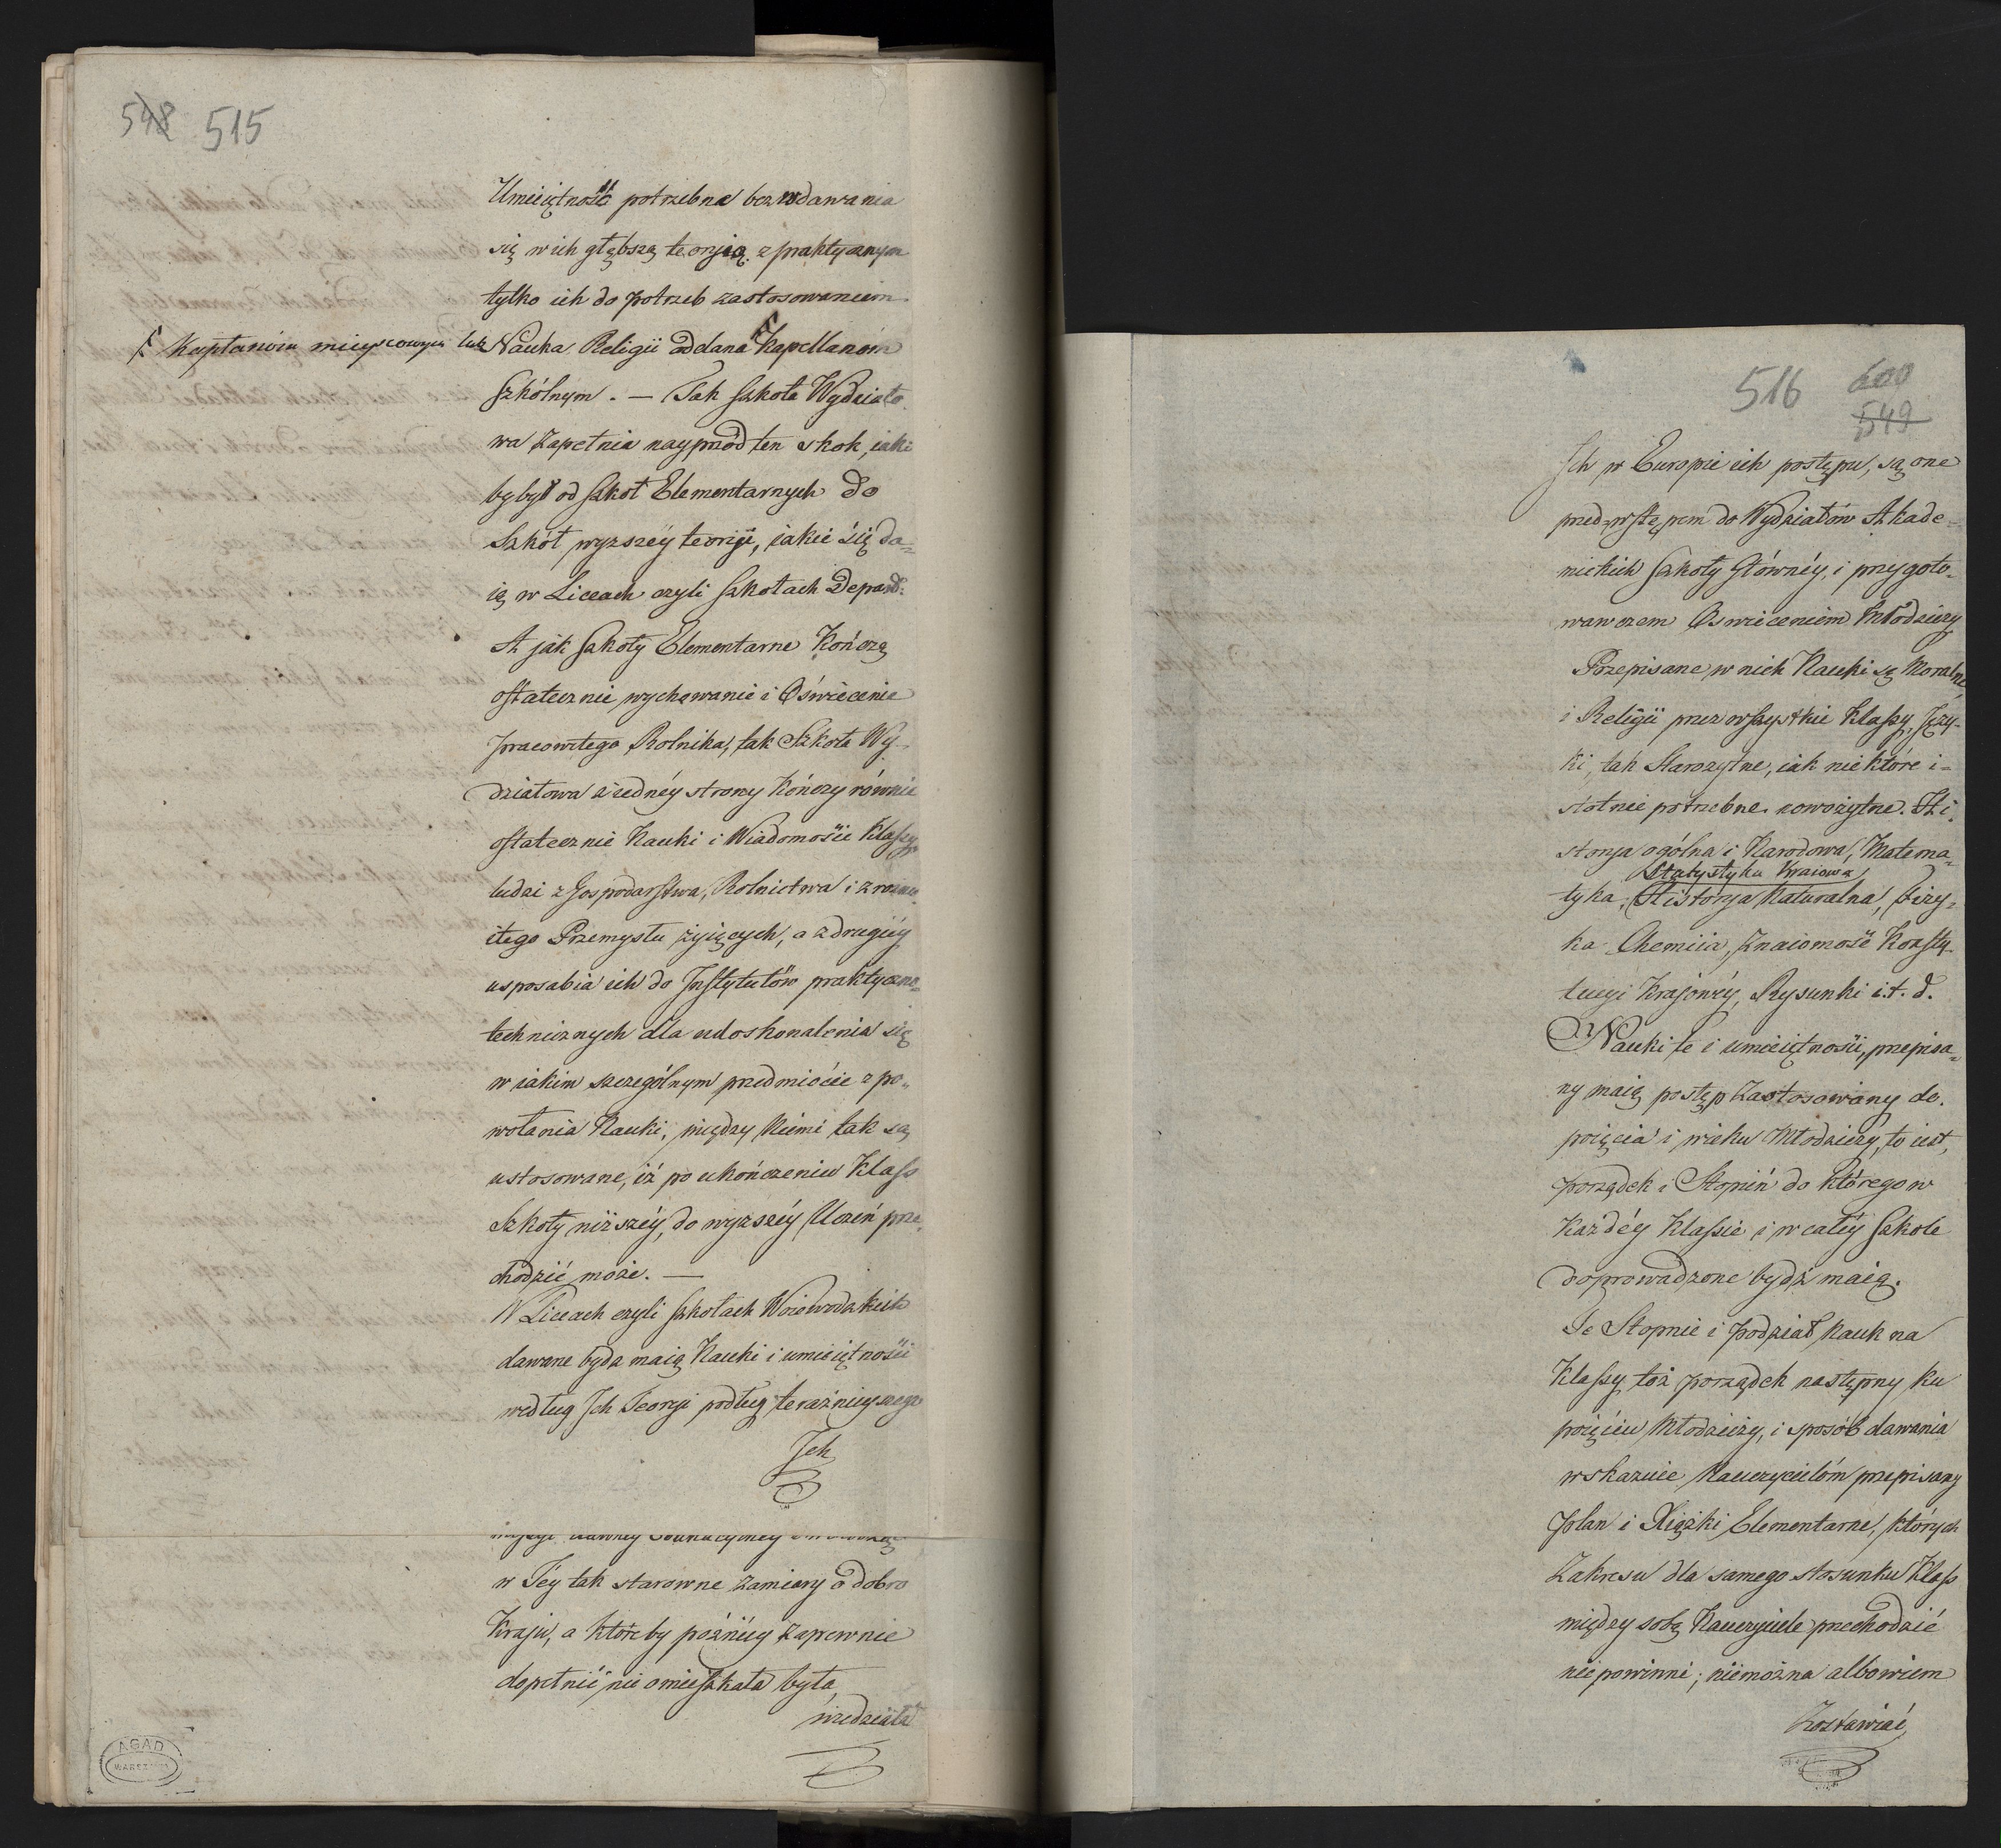 548 515
Umieiętność potrzebna bez wdawania
się w ich głębszą teoryią z praktycznym
tylko ich do potrzeb zastosowaniem
Kapłanóm mieyscowym lub
Nauka Religii oddana Kapellanóm
Szkólnym. — Tak Szkoła Wydziało
wa Zapełnia nayprzód ten skok, iaki
by był od Szkół Elementarnych do
Szkół wyższéy teoryi, iakie się da=
ią w Liceach czyli Szkołach Depart:
A jak Szkoły Elementarne Kończą
ostatecznie wychowanie i Oświecenie
pracowitego Rolnika, tak Szkoła Wy=
działowa z iednéy strony Kończy równie
ostatecznie Nauki i Wiadomości Klassy
ludzi z Gospodarstwa, Rolnictwa i z rozma
itego Przemysłu żyiących, a z drugiéy
usposabia ich do Instytutów praktyczno=
technicznych dla udoskonalenia się
w iakim szczególnym przedmiocie z po=
wołania Nauki, między Niemi tak są
ustosowane, iż po ukończeniu Klass
Szkoły niższéy, do wyższéy Uczeń prze=
chodzić może. —
W Liceach czyli Szkołach Woiewodzkich
dawane bydź maią Nauki i umieiętności
według Ich Teoryi podług teraźnieyszego
Ich
w Téy tak starowne zamiary o dobro
Kraju, a któreby późniéy zapewnie
dopełnić nie omieszkała była,
wiedziała
AGAD
WARSZAWA
516 600
549
Ich w Europie ich postępu, są one
przedwstępem do Wydziałów Akade=
mickich Szkoły Głównéy, i przygoto=
wawczem Oswieceniem Młodzieży
Przepisane w nich Nauki są Moralne
i Religii przez wszystkie Klassy, Języ=
ki, tak Starożytne, iak niektóre i=
stotnie potrzebne nowożytne. Hi=
storya ogólna i Narodowa, Matema=
Statystyka Kraiowa,
tyka, Historya Naturalna, Fizy=
ka Chemiia, Znaiomość Konsty=
tucyi Krajowéy, Rysunki i.t.d.
Nauki te i umieiętności, przepisa=
ny maią postęp Zastosowany do
poięcia i wieku Młodzieży, to iest,
porządek i Stopień do którego w
Każdéy Klassie i w całéy Szkole
doprowadzone bydź maią.
Te Stopnie i podział Nauk na
Klassy, toż porządek następny ku
poięciu Młodzieży, i sposób dawania
wskazuie Nauczycielóm przepisany
plan i Xiążki Elementarne, których
Zakresu dla samego stosunku Klass
między sobą Nauczyciele przechodzić
nie powinni; niemożna albowiem
Zostawiać